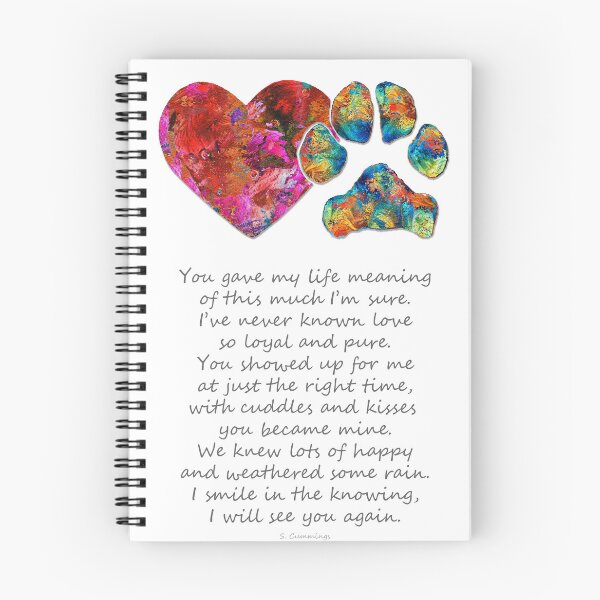 You gave my life meaning
of this much I'm sure.
I've never known love
so loyal and pure.
You showed up for me
at just the right time,
with cuddles and kisses
you became mine.
We knew lots of happy
and weathered some rain.
I smile in the knowing,
I will see you again.
S. Cummings